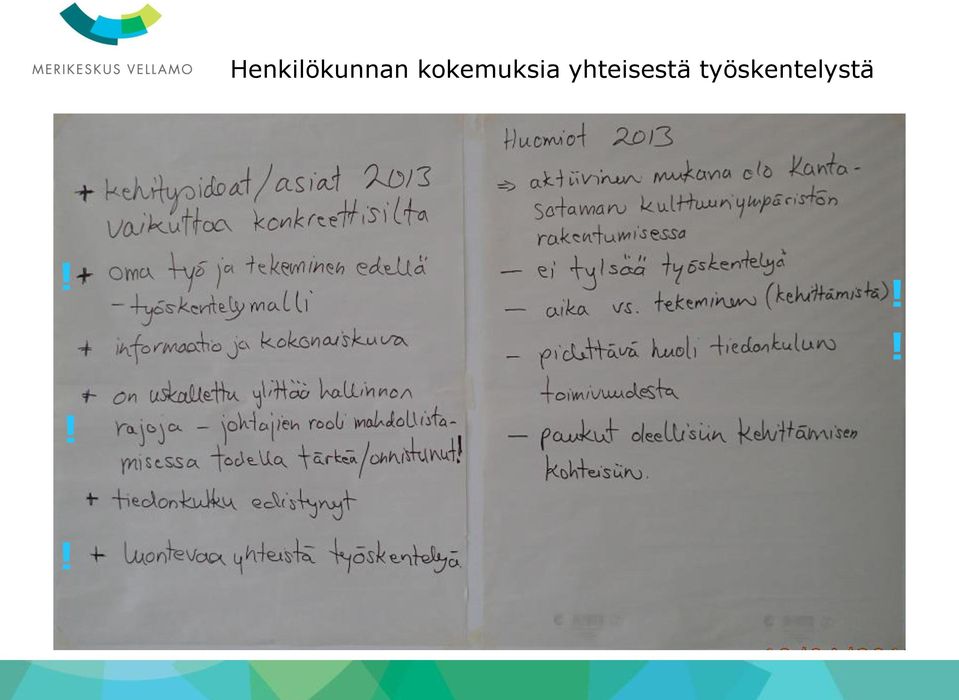 MERIKESKUS VELLAMO
Henkilökunnan kokemuksia yhteisestä työskentelystä
+ kehitysideat/asiat 2013
vaikuttaa konkreettisilta
! + oma työ ja tekeminen edellä
- työskentelymalli
+ informaatio ja kokonaiskuva
+ on uskallettu ylittää hallinnon
! rajoja - johtajien rooli mahdollista-
misessa todella tärkeä/onnistunut!
+ tiedonkulku edistynyt
! + luontevaa yhteistä työskentelyä
Huomiot 2013
⇒ aktiivinen mukana olo Kanta-
Sataman kulttuuriympäristön
rakentumisessa
- ei tylsää työskentelyä
- aika vs. tekeminen (kehittämistä) !
- pidettävä huoli tiedonkulun !
toimivuudesta
- paukut oleellisiin kehittämisen
kohteisiin.